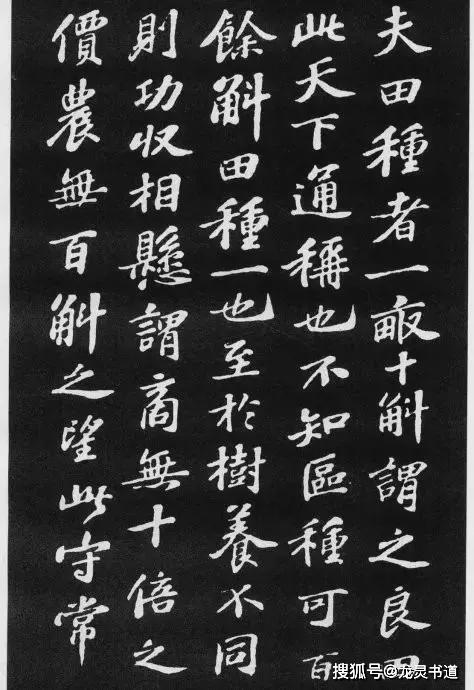 夫田種者一畝十斛謂之良田
此天下通稱也不知區種可百
餘斛田種一也至於樹養不同
則功収相懸謂商無十倍之
價農無百斛之望此守常
搜狐号@龙灵书道